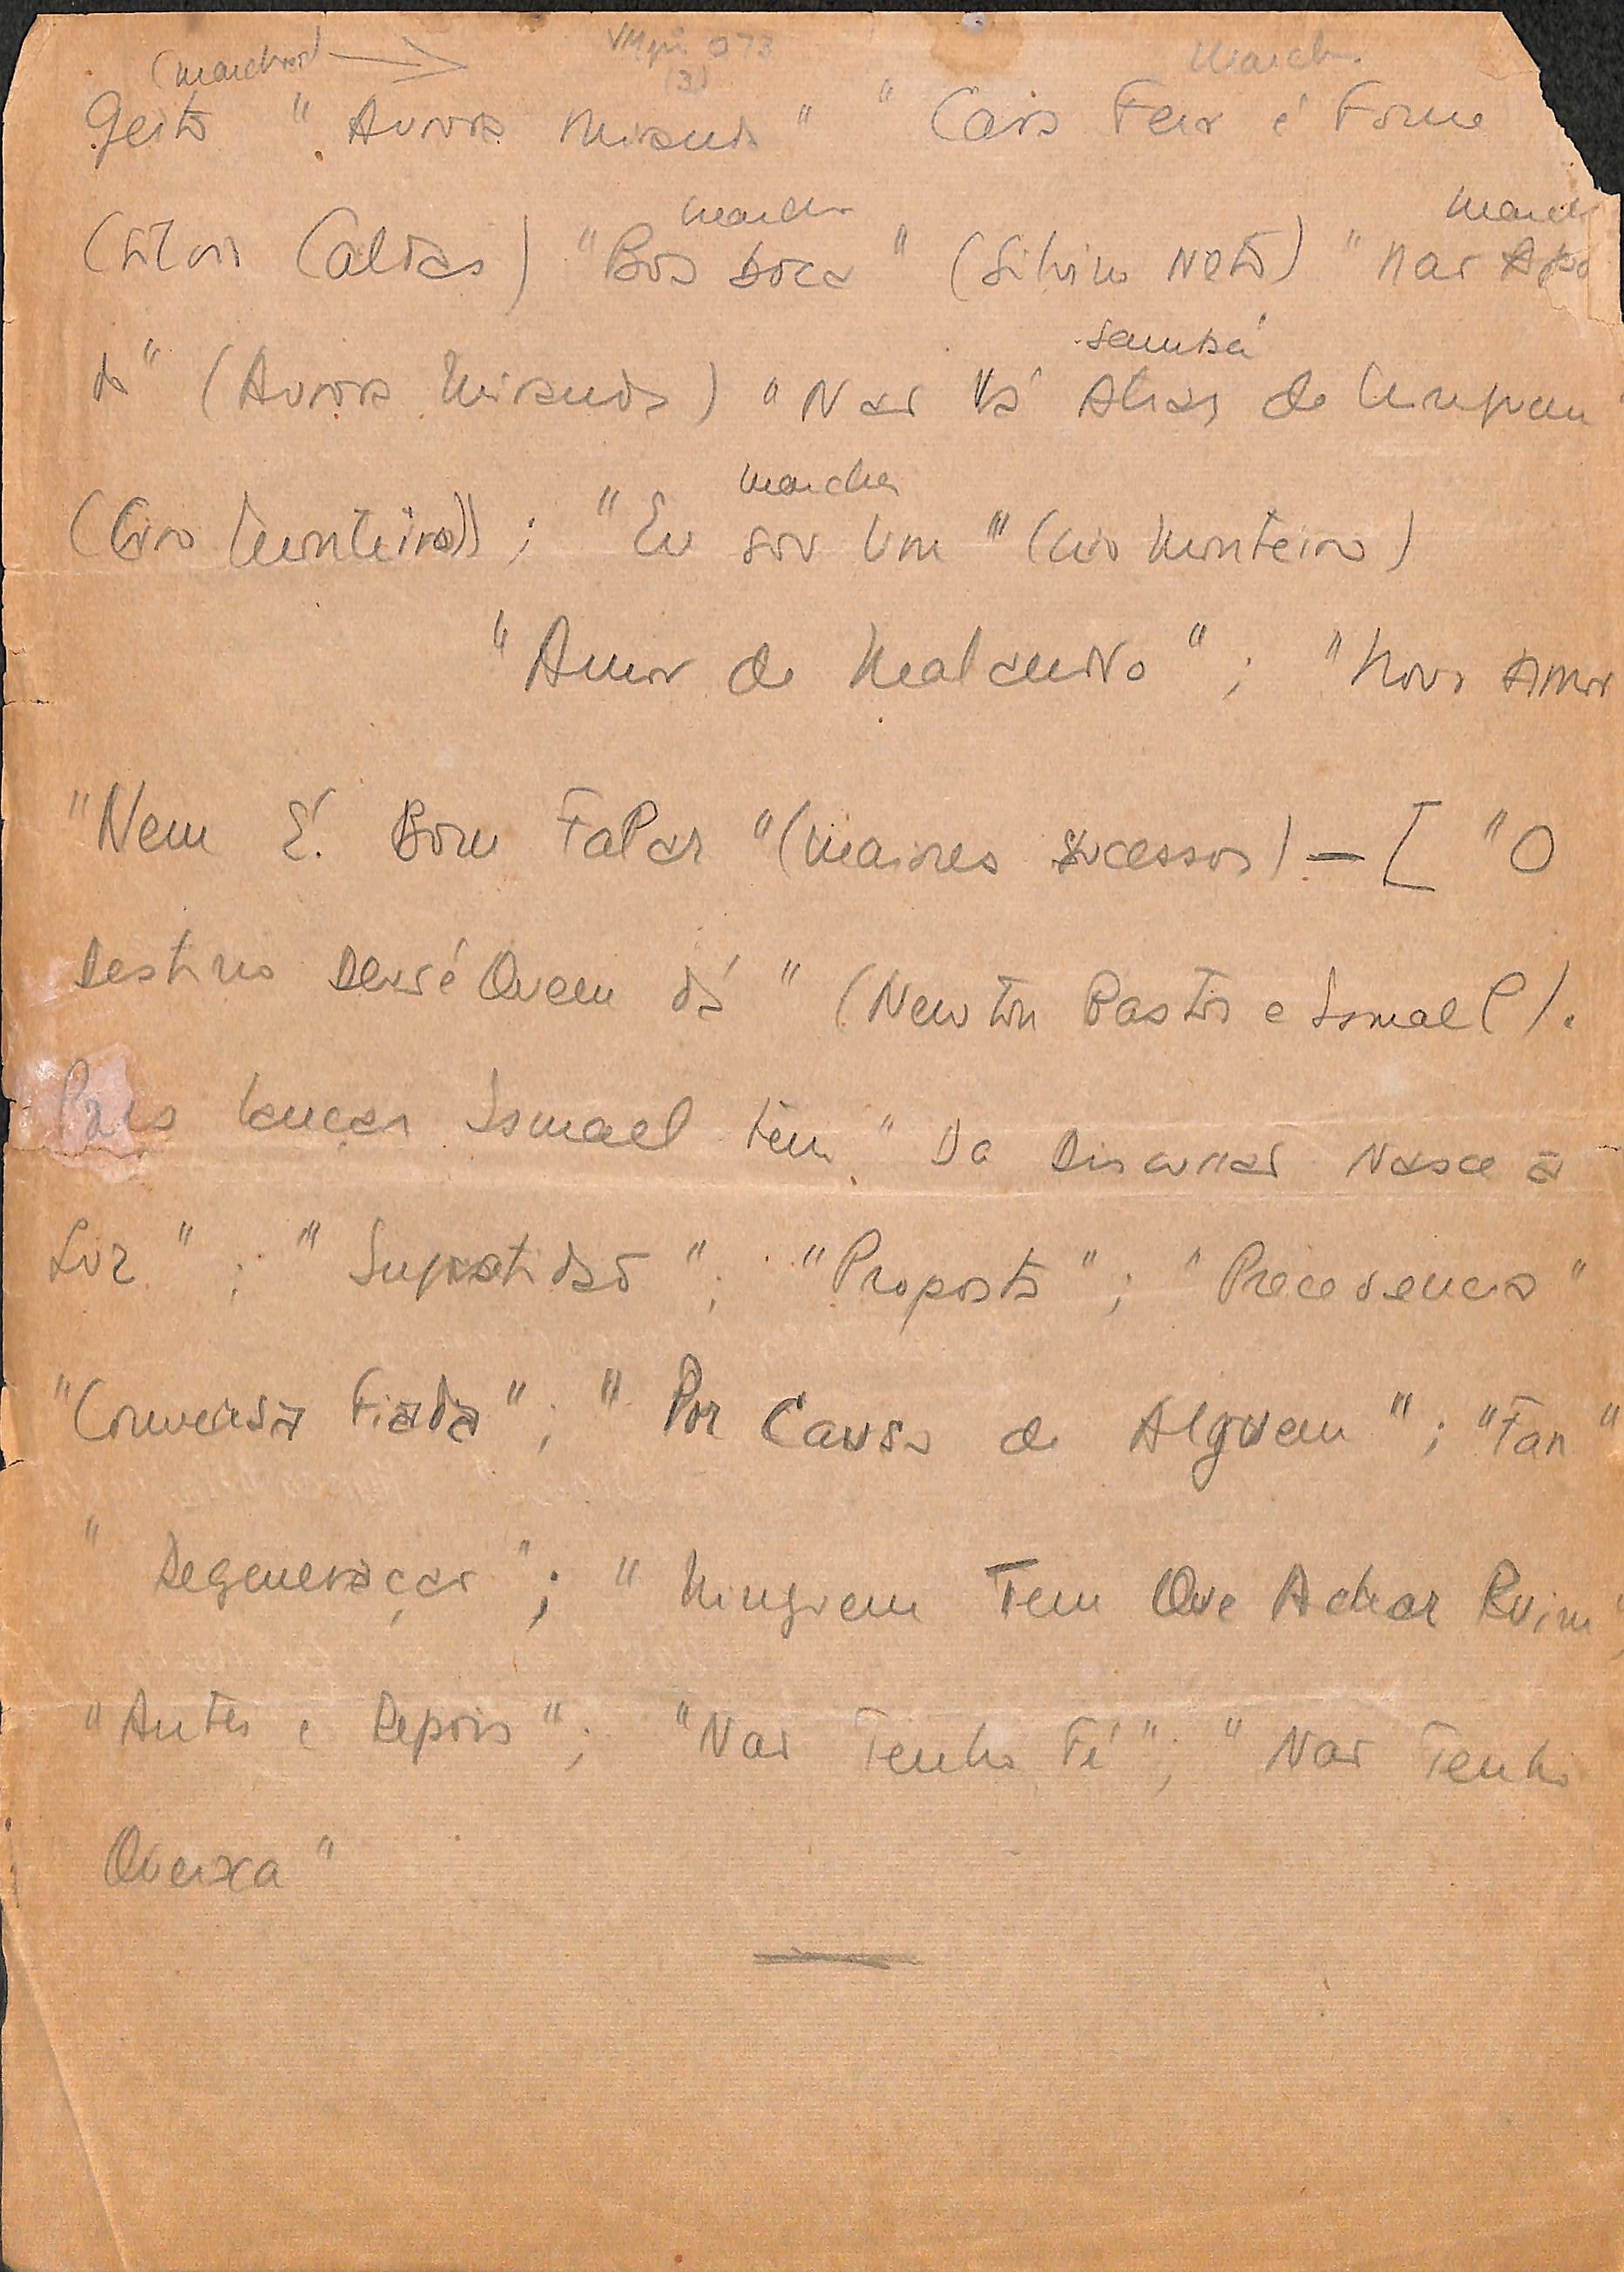 (marcha) VMpi 073 marcha
(3)
Geito "Aurora Miranda" "Cara Feia é Fome
(Silvio Caldas) "Boa boca" (Silvino Neto) "Não
marcha marcha
da" (Aurora Miranda) "Não Vá Atraz de Ninguem"
samba
(Ciro Monteiro); "Eu sou Um" (Ciro Monteiro)
marcha
"Amor de Malandro"; "Novo Amor
"Nem É Bom Falar" (maiores sucessos) — [ "O
Destino Deus é Quem dá" (Newton Bastos e Ismael).
Para lançar Ismael tem "Da Discussão Nasce a
Luz"; " "; "Proposta"; "Precedencia"
"Conversa Fiada"; "Por Causa de Alguem"; "Fan"
"Degeneração"; "Ninguem Tem Que Achar Ruim"
"Antes e Depois"; "Não Tenho Fé"; "Não Tenho
Queixa"